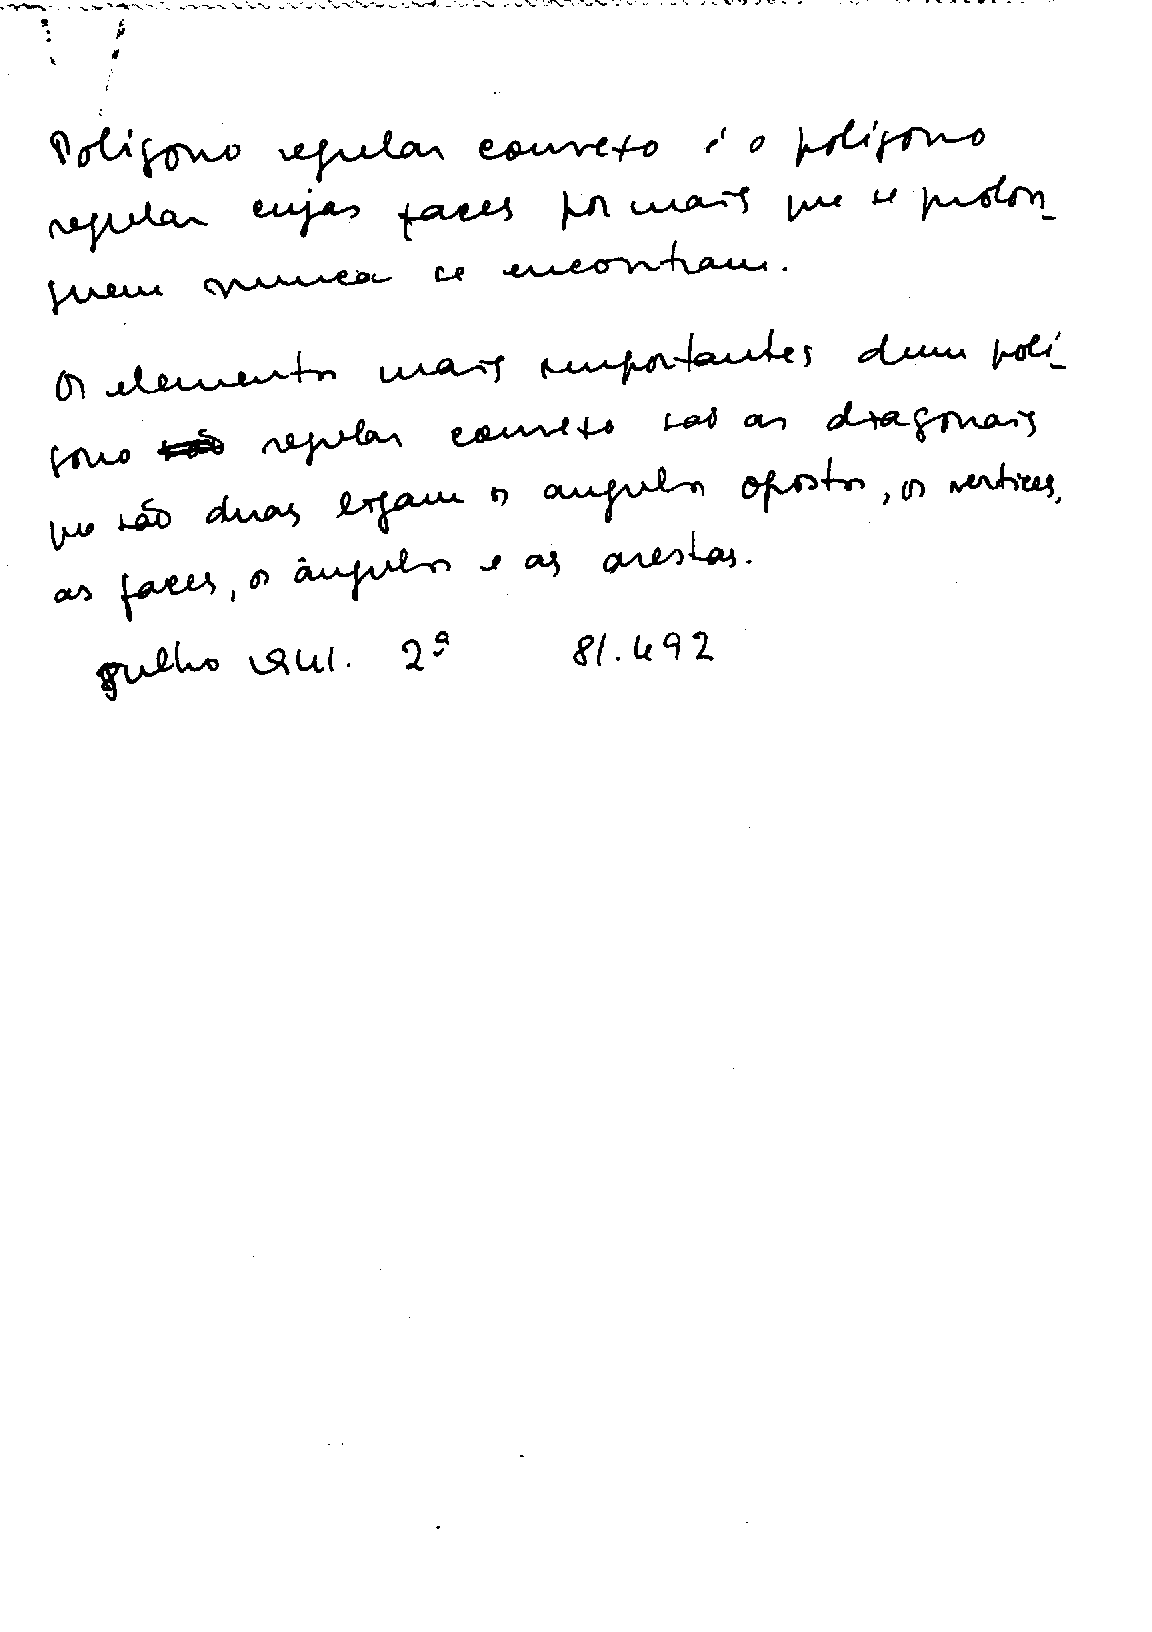 Polígono regular convexo é o polígono
regular cujas faces por mais que se prolon-
guem nunca se encontram.
Os elementos mais importantes dum polí-
gono regular convexo são as diagonais
que são duas ligam os angulos opostos, os vertices,
as faces, os ângulos e as arestas.
julho 1941. 2ª 81.492